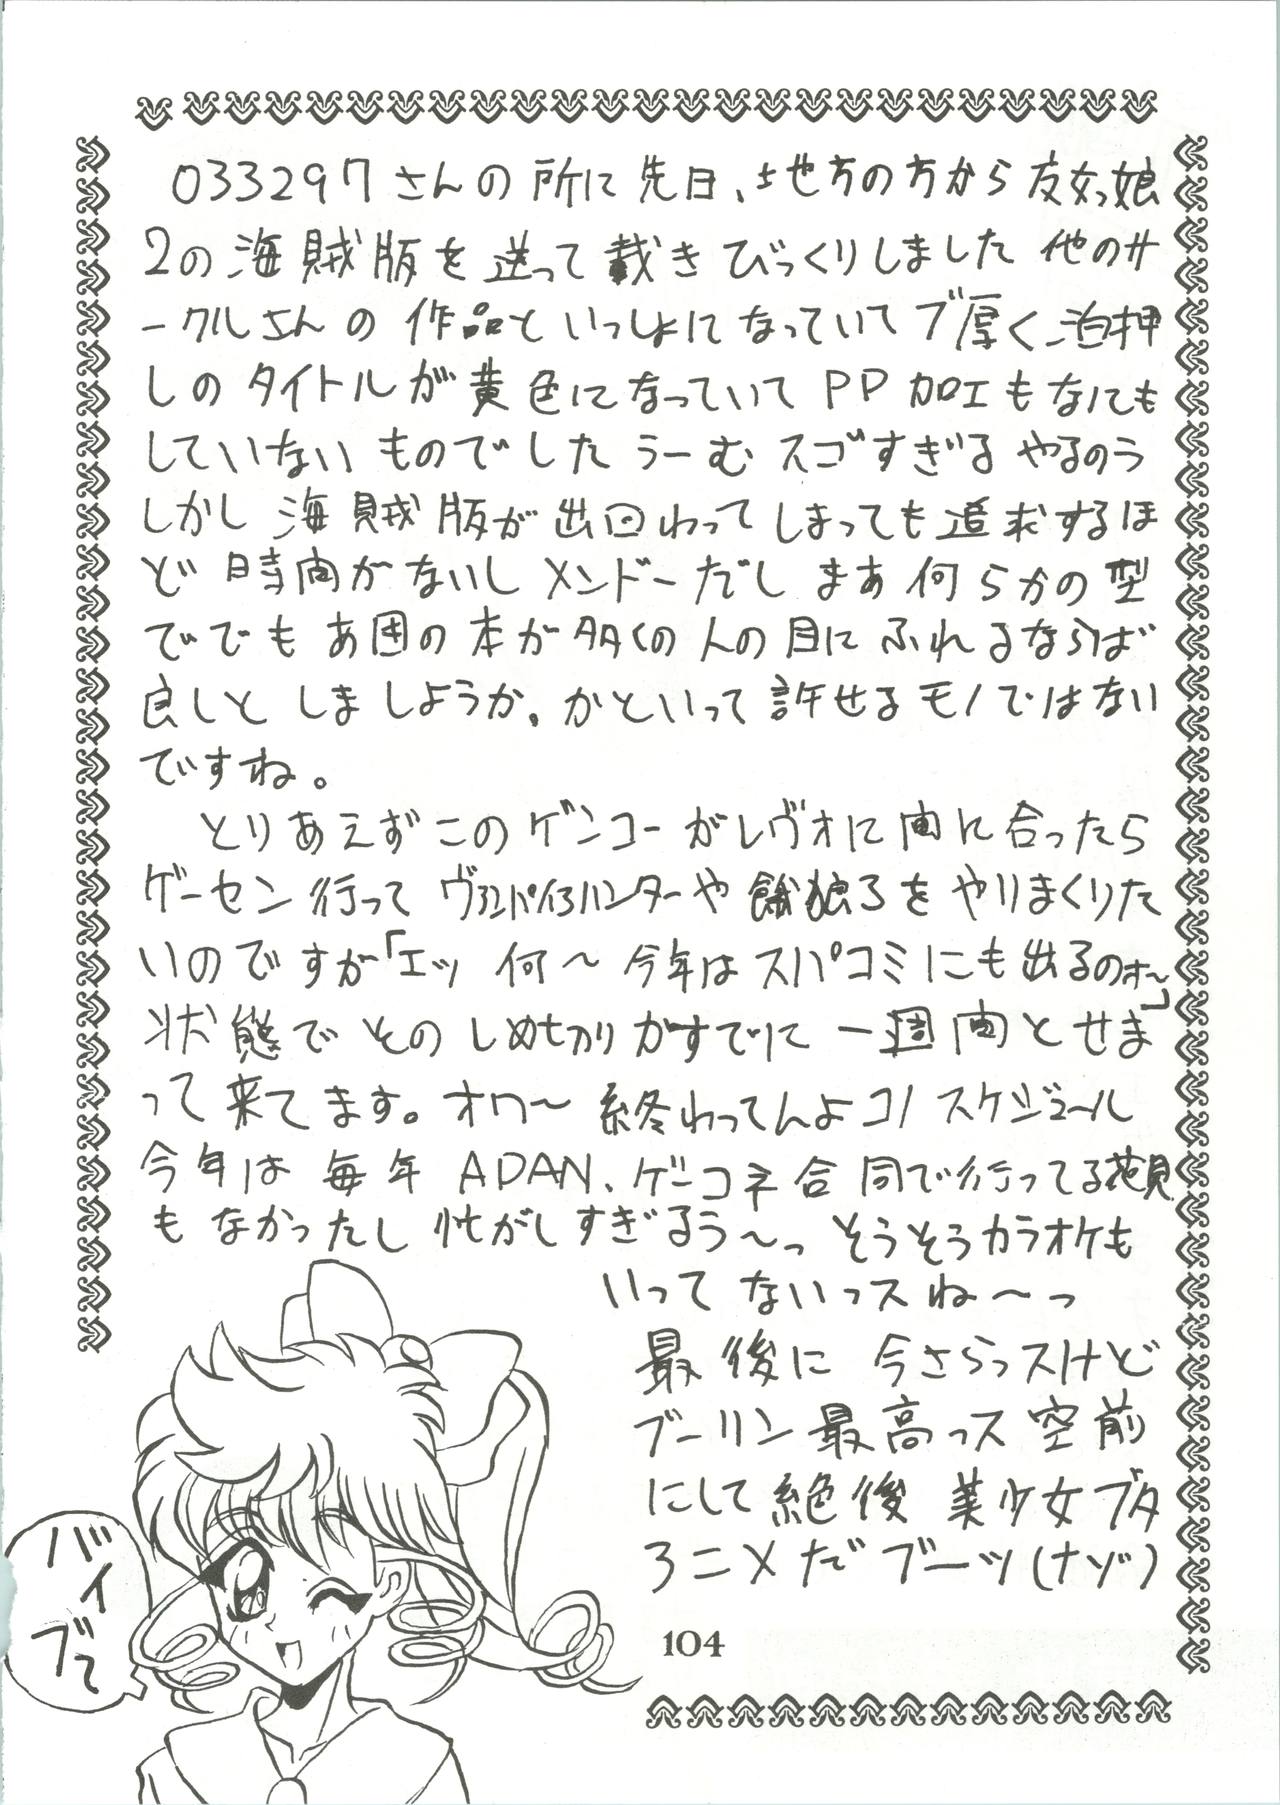 033297さんの所に先日、地方の方から友女っ娘
2の海賊版を送って載きびっくりしました 他のサ
ークルさんの作品といっしょになっていてブ厚く、泊押
しのタイトルが黄色になっていてPP加工もなにも
していないものでした うーむ スゴすぎる やるのう
しかし 海賊版が出回わってしまっても追求するほ
ど時間がないし メンドーだし まあ何らかの型
ででも あ国の本が多くの人の目にふれるならば
良しと しましょうか。かといって許せるモノではない
ですね。
とりあえずこのゲンコーがレヴォに間に合ったら
ゲーセン行って ヴァンパイアハンターや餓狼3をやりまくりた
いのですが「エッ 何〜 今年はスパコミにも出るのォ〜」
状態でそのしめちりがすでに一週間とせま
って来てます。オワ〜 終わってんよコノスケジュール
今年は毎年ADAN、ゲーコネ合同で行ってる花見
もなかったし 忙がしすぎるう〜っ そうそうカラオケも
いってないっスね〜っ
最後に 今さらっスけど
ブーリン最高っス 空前
にして絶後 美少女ブタ
アニメだ ブーッ(ナゾ)
バイブで
104